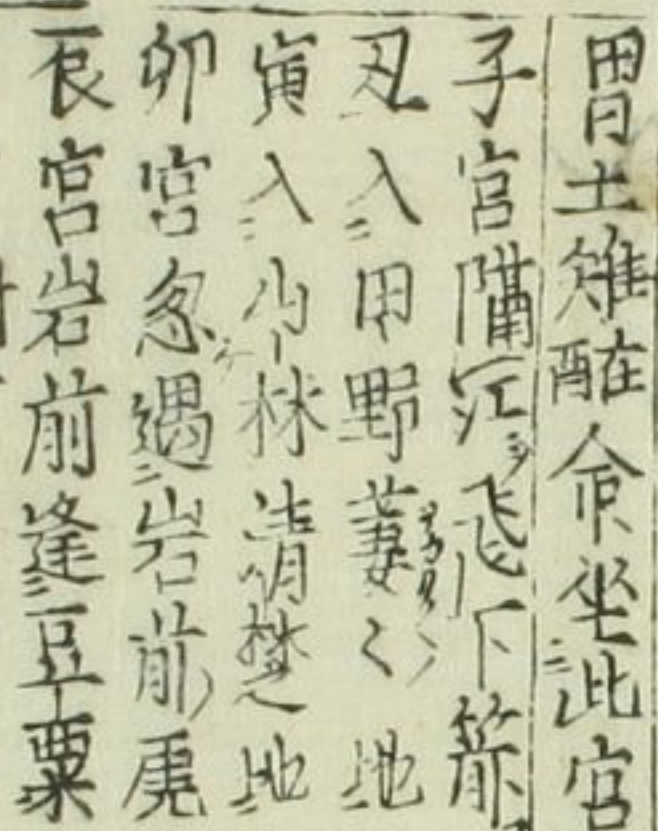 胃土雉酉在命坐此宮
子宮隔江飛下箭
丑入田野萋〻地
寅入山林清楚地
卯宮忽遇岩前虎
辰宮岩前逢豆粟